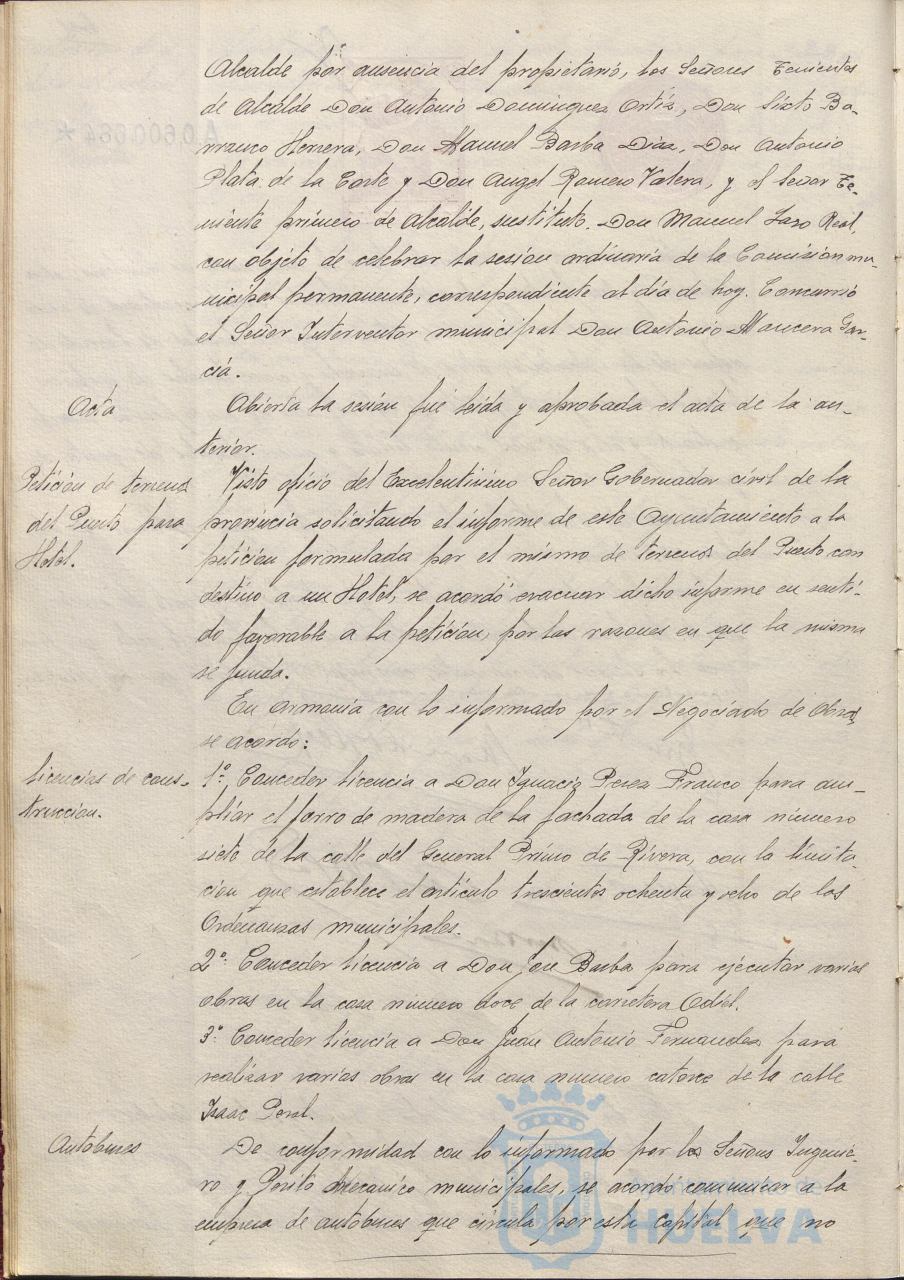 Alcalde por ausencia del propietario, los Señores Tenientes
de Alcalde Don Antonio Dominguez Ortiz, Don Sixto Ba-
rranco Herrera, Don Manuel Barba Diaz, Don Antonio
Plata de la Corte y Don Angel Romero Valera, y el Señor Te-
niente primero de Alcalde, sustituto, Don Manuel Lazo Real,
con objeto de celebrar la sesion ordinaria de la Comision mu-
nicipal permanente, correspondiente al día de hoy. Concurrió
el Señor Interventor municipal Don Antonio Mancera Gar-
cía.
Acta
Abierta la sesion fué leida y aprobada el acta de la an-
terior.
Petición de terrenos
del Puerto para
Hotel.
Visto oficio del Excelentisimo Señor Gobernador civil de la
provincia solicitando el informe de este Ayuntamiento a la
petición formulada por el mismo de terrenos del Puerto con
destino a un Hotel, se acordó evacuar dicho informe en senti-
do favorable a la petición, por las razones en que la misma
se funda.
En armonia con lo informado por el Negociado de Obras
se acordo:
Licencias de cons-
truccion.
1º. Conceder licencia a Don Ignacio Perez Franco para am-
pliar el forro de madera de la fachada de la casa número
siete de la calle del General Primo de Rivera, con la limita
cion que establece el artículo trescientos ochenta y ocho de las
Ordenanzas municipales.
2º. Conceder licencia a Don José Barba para ejecutar varias
obras en la casa número doce de la carretera Odiel.
3º. Conceder licencia a Don Juan Antonio Fernandez para
realizar varias obras en la casa numero catorce de la calle
Isaac Peral.
Autobuses
De conformidad con lo informado por los Señores Ingenie-
ro y Perito Mecanico municipales, se acordó comunicar a la
empresa de autobuses que circula por esta capital que no
Ayuntamiento de
HUELVA